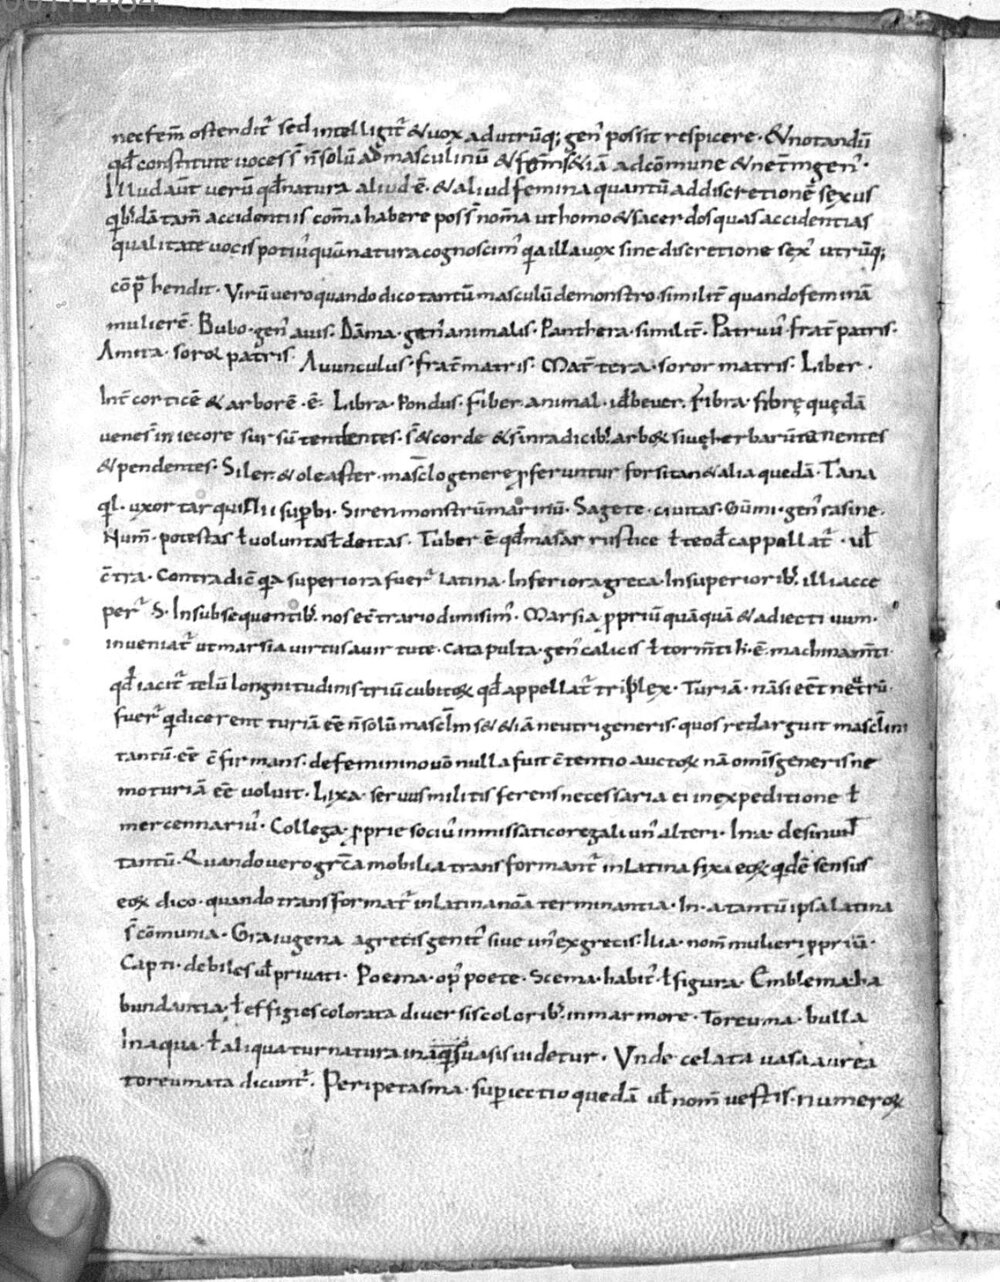 nec fem̄ ostendit᷑ sed intelligit᷑ & uox ad utrūq; gen᷒ possit respicere · & notandū
qđ constitute uoces s̄ n̄ solū ad masculinū & fem̄ s& iā ad cōmune & neut̄m gen᷒ ·
Illud aūt uerū qđ natura aliud ē · & aliud femina quantū ad discretionē sexus
qb᷒dā tam̄ accidentiis cōm̄a habere poss᷒ nom̄a ut homo & sacerdos quas accidentias
qualitate uocis poti᷒ quā natura cognoscim᷒ qa illa uox sine discretione sex᷒ utrūq;
cōp̄hendit · Virū uero quando dico tantū masculū demonstro · similit̄ quando feminā
mulierē · Bubo · gen᷒ auis · Dāma · gen᷒ animalis · Panthera · similit̄ · Patruu᷒ · frat̄ patris ·
Amita · soror patris · Auunculus · frat̄ matris · Mat̄tera · soror matris · Liber ·
Int̄ corticē & arborē · ē · Libra · pondus · Fiber · animal · id bever · Fibra · fibrę quędā
uene s̄ in iecore sursū tendentes · s̄ & corde & s̄ in radicib᷒ arboꝝ siue herbarū tenentes
& pendentes · Siler · & oleaster · masc̄lo genere ꝓferuntur forsitan & alia quedā · Tana
ql · uxor tarquinii supbi · Siren monstrū marinū · Sagete · ciuitas · Gūmi · gen᷒ rasine ·
Num̄ · potestas ł uoluntas ł deitas · Tuber ē qđ masar rustice ł teod̄ cappellat᷑ · uł
c̄tra · Contra dic̄ qa superiora fuer᷑ latina · Inferiora greca · In superiorib᷒ illi acce
per᷑ · S · In subsequentib᷒ nos ec̄trario dimisim᷒ · Marsia ꝓpriū quāquā & adiectiuum ·
inueniat᷑ ut marsia uirtus a uirtute · Catapulta · gen᷒ calicis ł torm̄ti · h · ē · machinam̄ti
qđ iacit᷑ telū longitudinis triū cubitoꝝ qđ appellat᷑ triplex · Turiā · nā si eēt neutrū ·
fuer᷑ qi dicerent turiā eē n̄ solū masc̄lm s& & iā neutri generis · quos redarguit masc̄lini
tantū · eē c̄firmans · de feminino uō nulla fuit c̄tentio auctoꝝ nā om̄is generis ne
mo turiā eē uoluit · Lixa · seruus militis ferens necessaria ei in expeditione ł
mercennari᷒ · Collega · ꝓprie soci᷒ in missatico regali un᷒ alteri · In a · desinun̄t
tantū · Quando uero gr̄ca mobilia transformant᷑ in latina fixa eoꝝ qidē sensus
eoꝝ dico · quando transformat᷑ in latina nōa terminantia · In · a tantū ipsa latina
s̄ cōmunia · Graiugena a grecis genit᷒ siue un᷒ ex grecis · Ilia · nom̄ mulieri ꝓpriū ·
Capti · debiles uł priuati · Poema · op᷒ poete · Scema · habit᷒ · ł figura · Emblema · ha
bundantia · ł effigies colorata diuersis colorib᷒ in marmore · Toreuma · bulla
in aqua · ł aliqua turnatura in uasis uidetur · Vnde celata uasa aurea
toreumata dicunt᷑ · Peripetasma · supiectio quedā uł nom̄ uestis · numeroꝝ